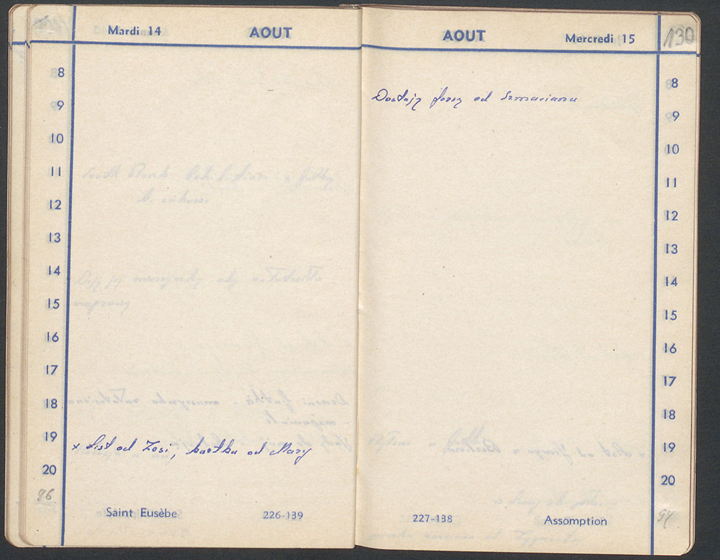 Mardi 14 AOUT
8
9
10
11
12
13
14
15
16
17
18
19
x List od Zosi, kartka od Mary
20
96
Saint Eusèbe 226-139
AOUT Mercredi 15 130
8
Dostaję od
9
10
11
12
13
14
15
16
17
18
19
20
227-138 Assomption